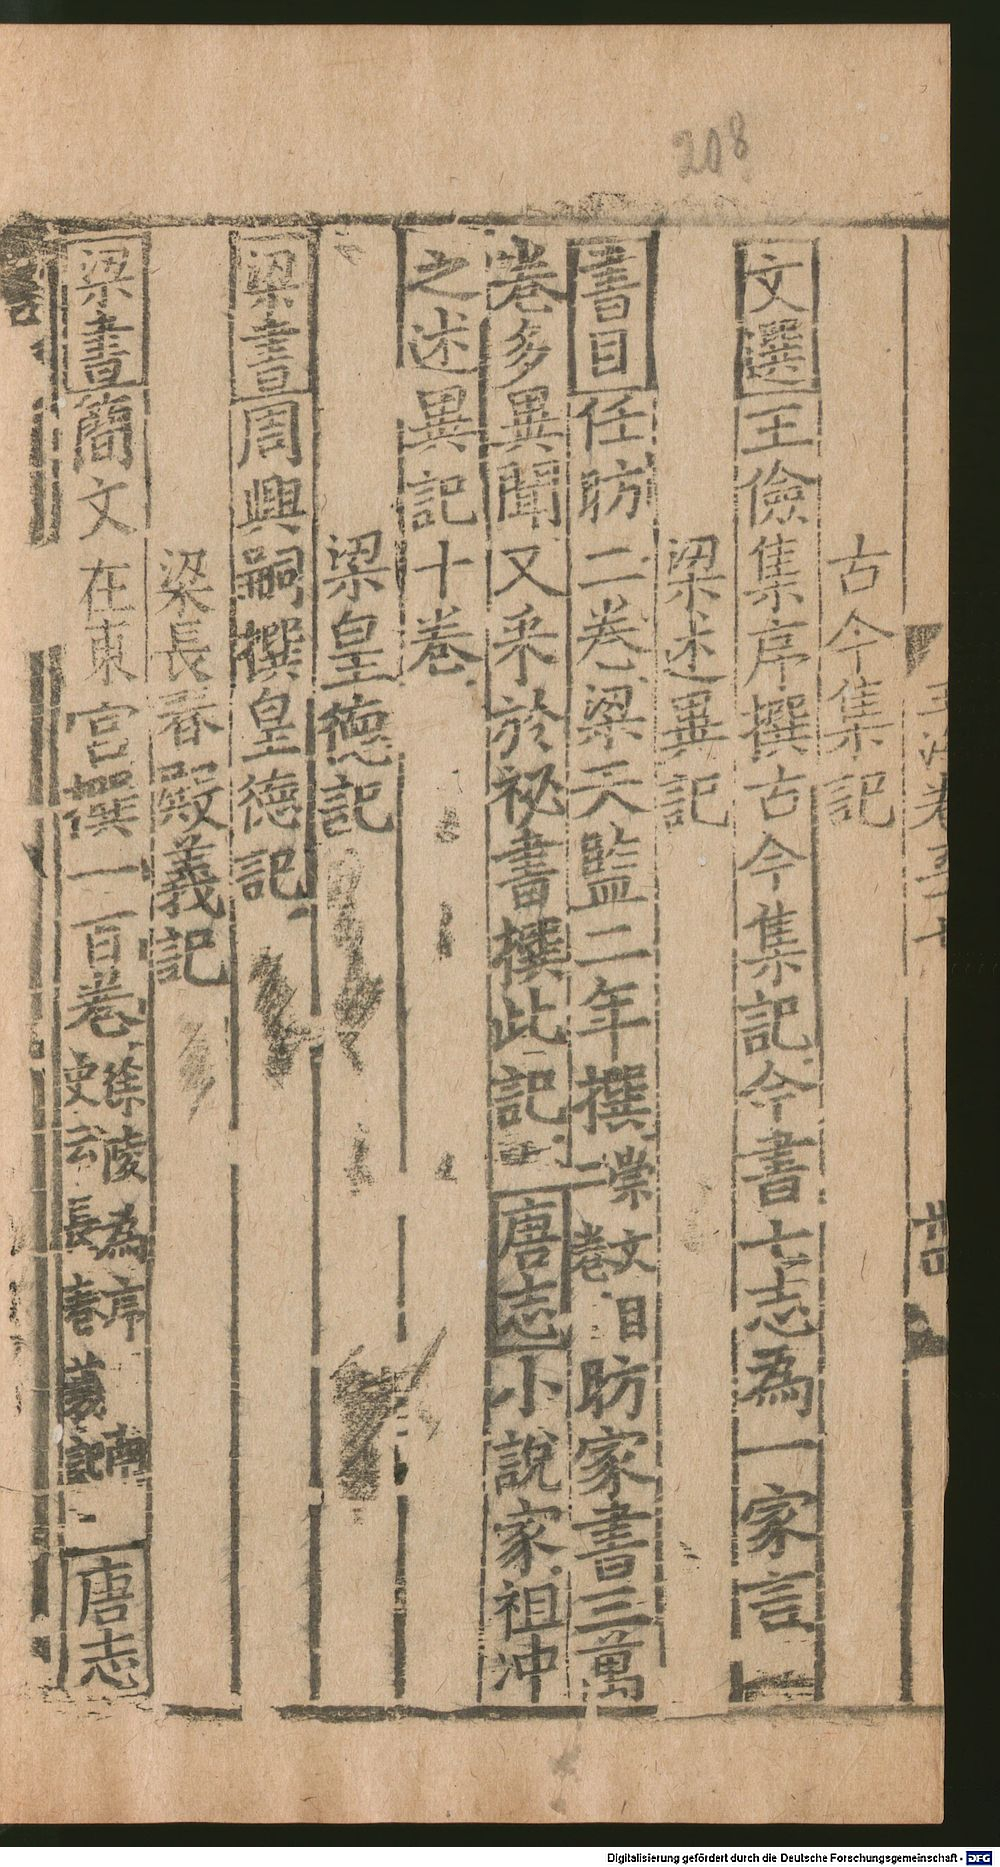 208
古今集記
文選王儉集序撰古今集記今書七志為一家言
梁述異記
書目任昉二卷梁天監二年撰崇文目二卷昉家書三萬
卷多異聞又采於祕書撰此記唐志小說家祖沖
之述異記十卷
梁皇德記
梁書周興嗣撰皇德記
梁長春殿義記
梁書簡文在東宮撰一百卷徐陵為序南史云長春義記唐志
Digitalisierung gefördert durch die Deutsche Forschungsgemeinschaft - DFG